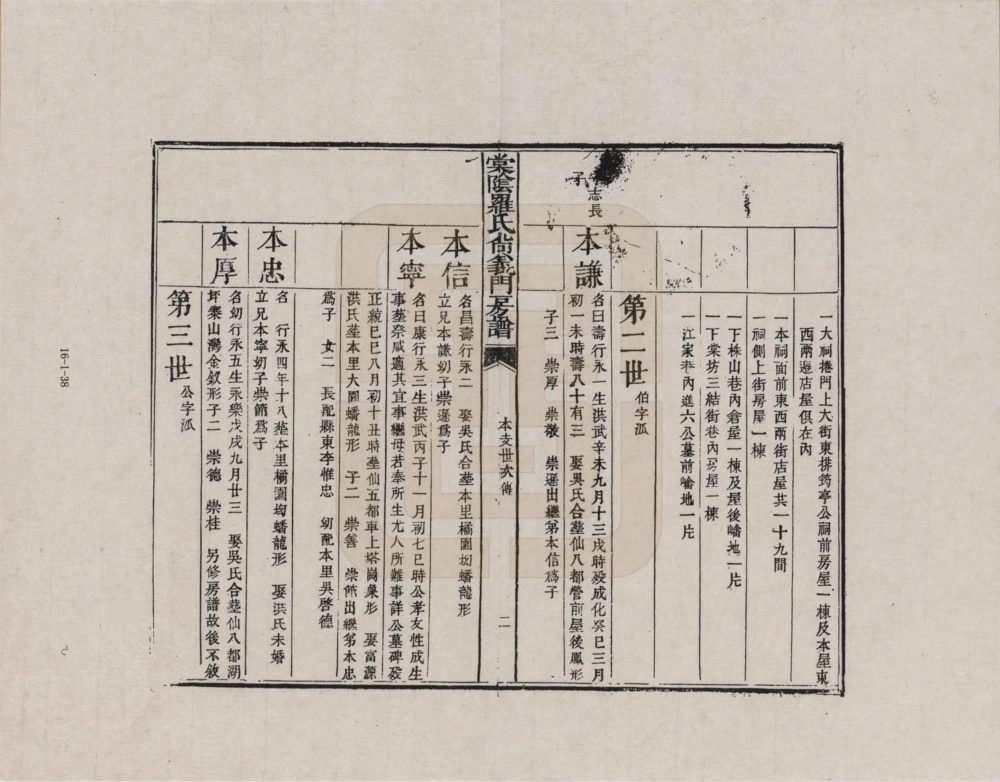 一大祠捲門上大街東排筠亭公祠前房屋一棟及本屋東
西兩邊店屋俱在內
一本祠面前東西兩街店屋共一十九間
一祠側上街房屋一棟
一下株山巷內倉屋一棟及屋後嶓地一片
一下棠坊三結街巷內房屋一棟
一江家巷內進六公墓前嶓地一片
第二世 伯字派
志長
子
本謙
名曰壽行永一生洪武辛未九月十三戌時歿成化癸巳三月
初一未時壽八十有三 娶吳氏合墓仙八都管前屋後鳳形
子三 崇厚 崇敬 崇遜出繼第本信爲子
棠陰羅氏尚義門房譜
本支世次傳
二
本信
名昌壽行永二 娶吳氏合墓本里橘園坳蟠龍形
立兄本謙幼子崇遜爲子
本寧
名曰康行永三生洪武丙子十一月初七巳時公孝友性成生
事墓祭咸適其宜事繼母若奉所生尤人所難事詳公墓碑歿
正統己巳八月初十丑時墓仙五都車上塔崗象形 娶富源
洪氏墓本里大園蟠龍形 子二 崇善 崇節出繼第本忠
爲子 女二 長配縣東李惟忠 幼配本里吳啓德
本忠
名 行永四年十八墓本里橘園坳蟠龍形 娶洪氏未婚
立兄本寧幼子崇節爲子
本厚
名幼行永五生永樂戊戌九月廿三 娶吳氏合墓仙八都湖
坪樂山灣金釵形子二 崇德 崇桂 另修房譜故後不敘
第三世 公字派
16-1-38